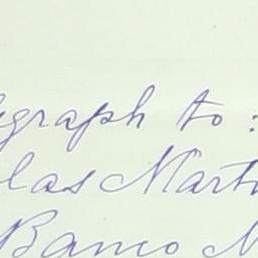 graph to:
las Martin
Banco N